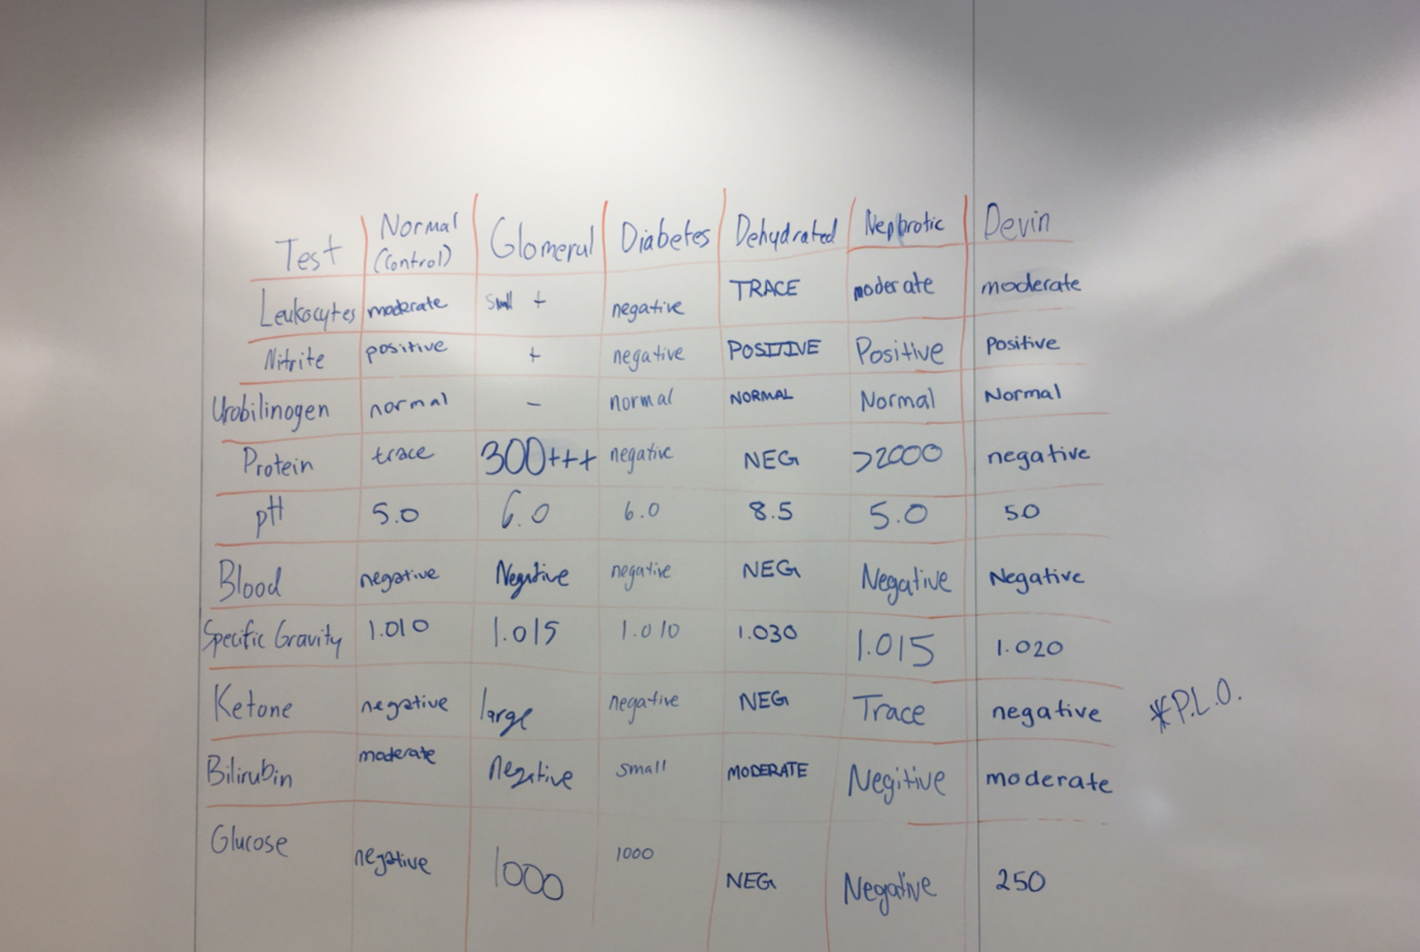 Test Normal (Control) Glomerul Diabetes Dehydrated Nephrotic Devin
Leukocytes moderate small + negative TRACE moderate moderate
Nitrite positive + negative POSITIVE Positive Positive
Urobilinogen normal - normal NORMAL Normal Normal
Protein trace 300+++ negative NEG >2000 negative
pH 5.0 6.0 6.0 8.5 5.0 5.0
Blood negative Negative negative NEG Negative Negative
Specific Gravity 1.010 1.015 1.010 1.030 1.015 1.020
Ketone negative large negative NEG Trace negative *P.L.O.
Bilirubin moderate negative small MODERATE Negitive moderate
Glucose negative 1000 1000 NEG Negative 250